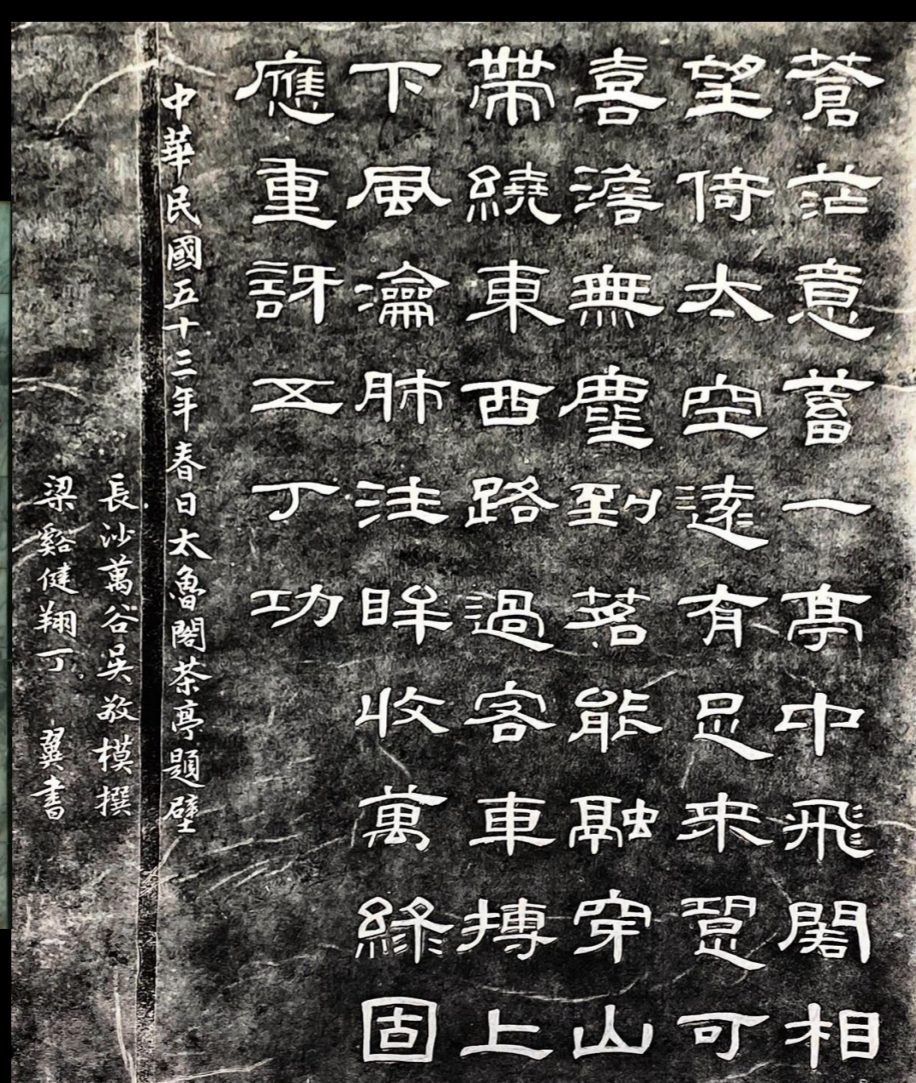 蒼茫意蓄一亭中飛閣相
望倚太空遠有足来跫可
喜澹無塵到茗能融穿山
帶繞東西路過客車摶上
下風瀹肺注眸收萬綠固
應重訝五丁功
中華民國五十三年春日太魯閣茶亭題壁
長沙萬谷吳敬模撰
梁谿健翔丁 翼書